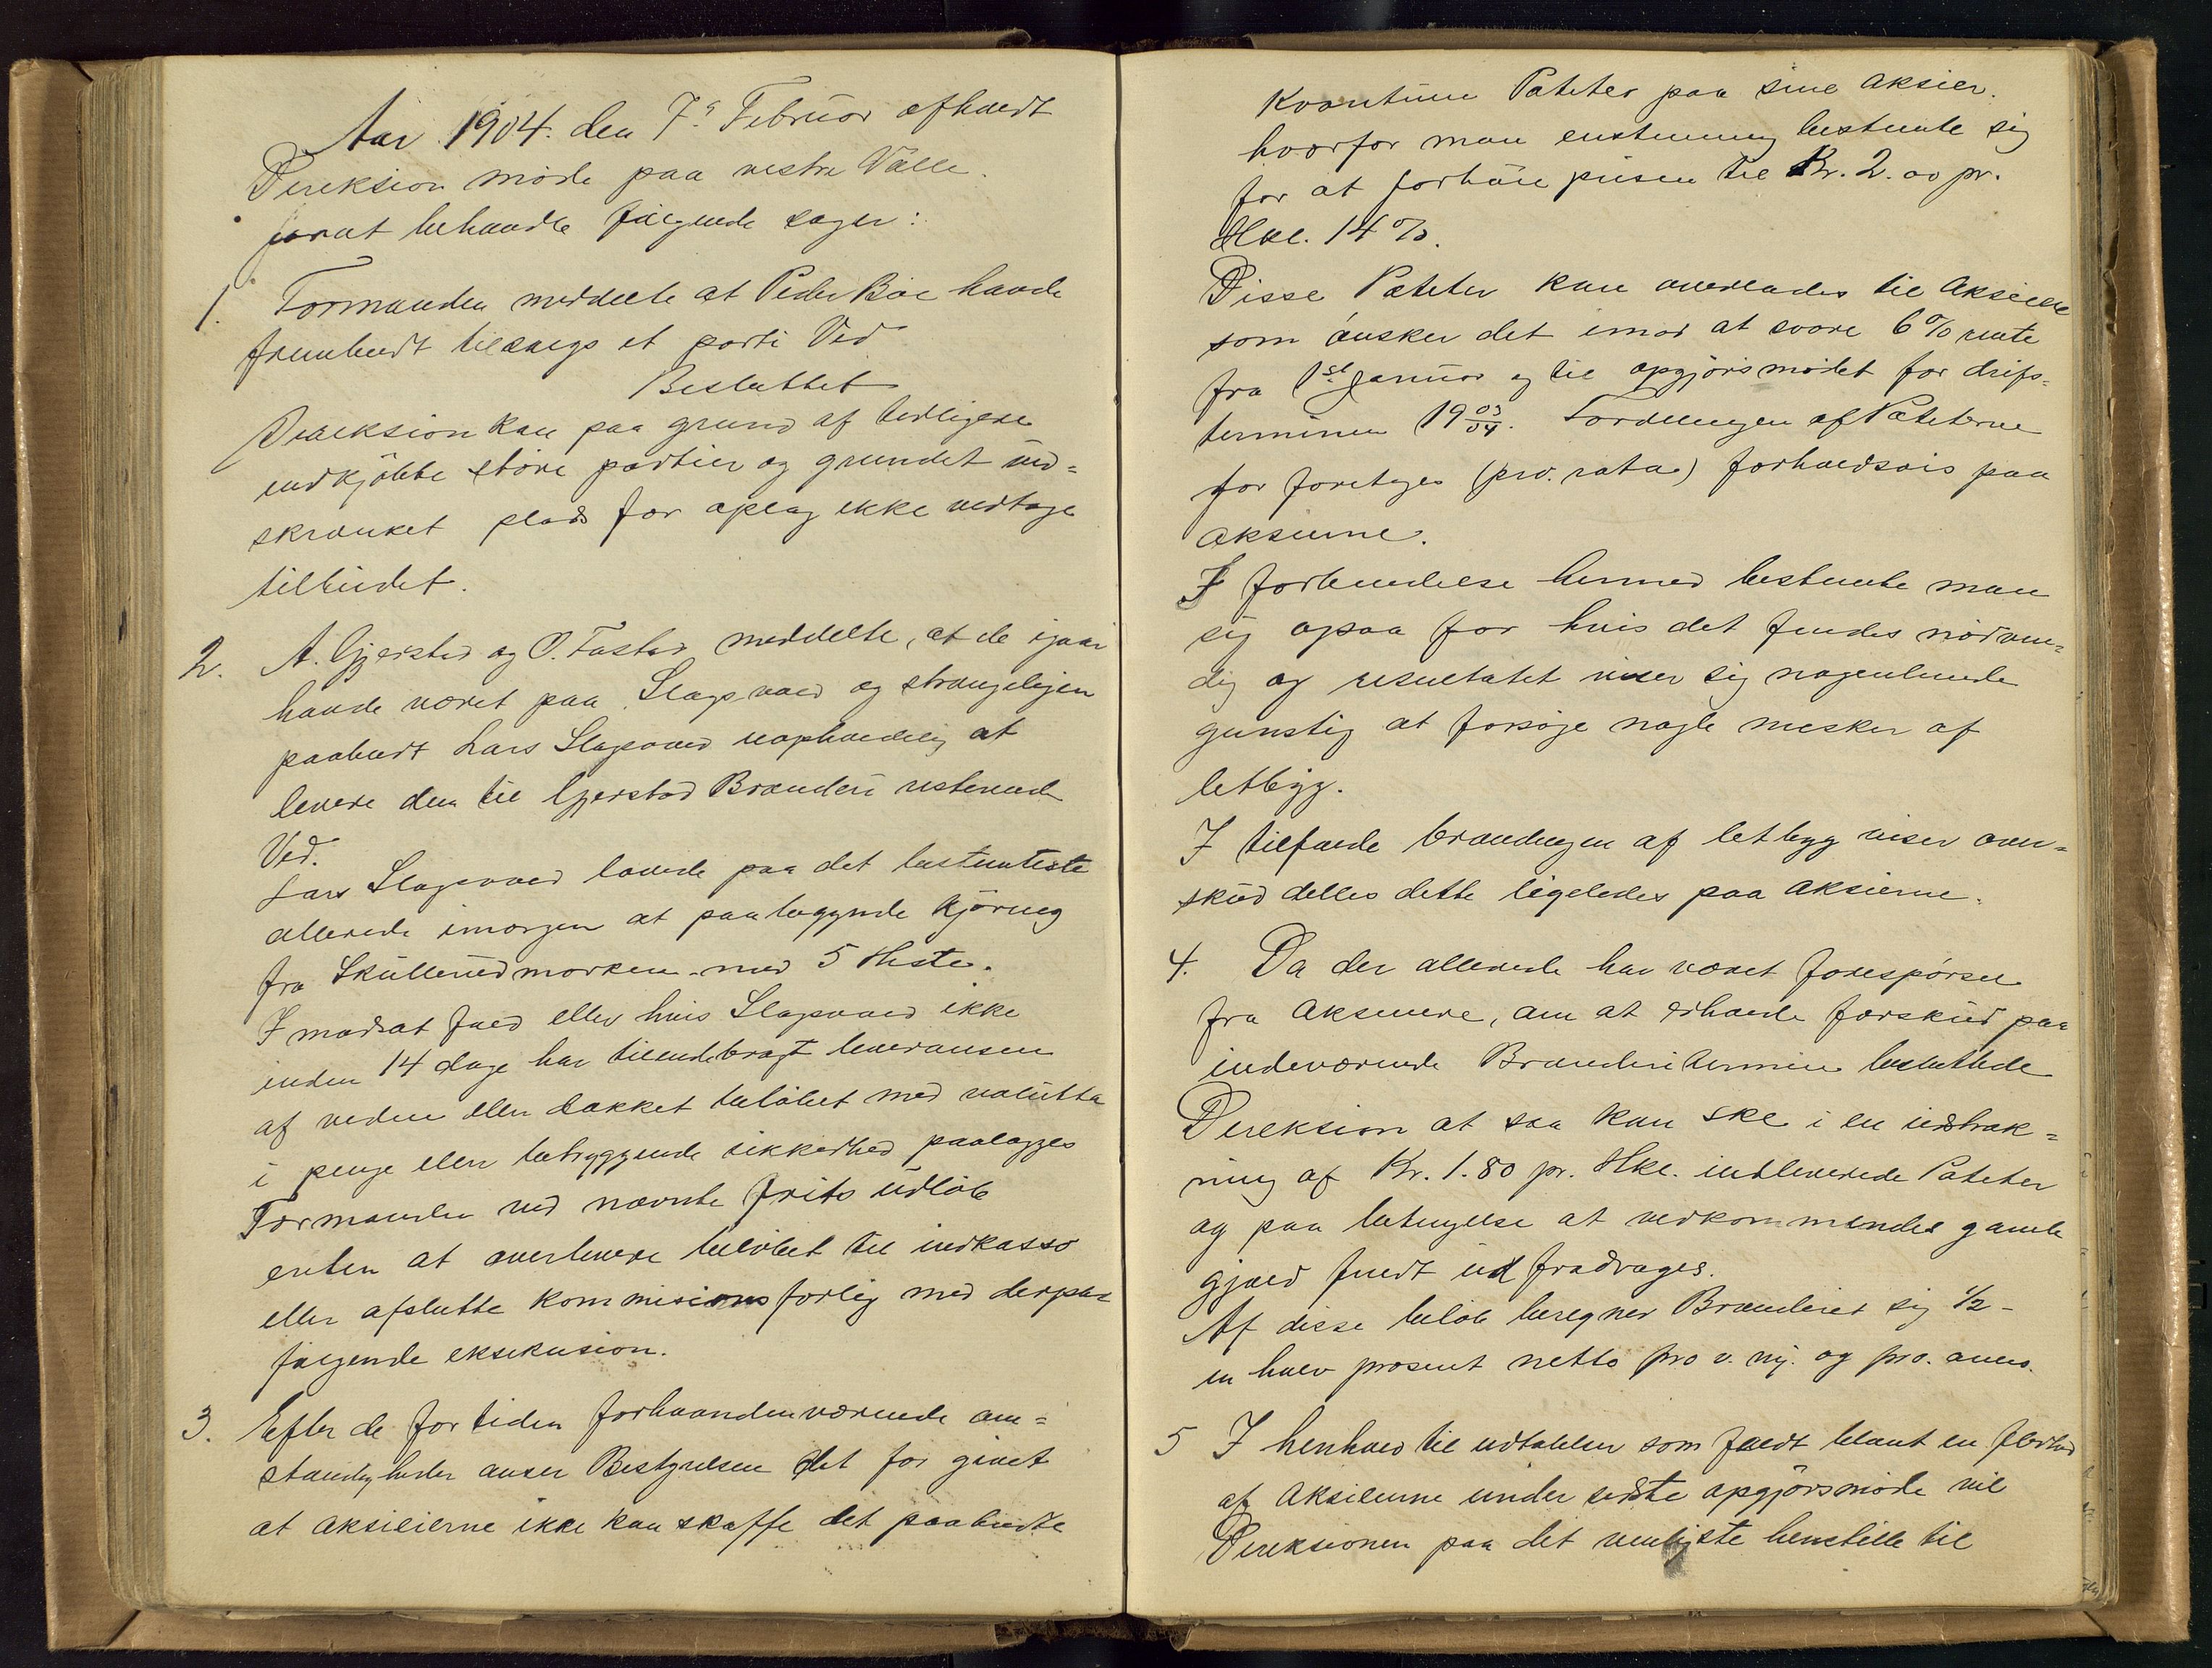 Aar 1904. den 7de Februar afholdt
Direksion møde paa vestre Vålle.
forat behandle følgende sager:
1. Formanden meddelte at Peder Bøe havde
frembudt tilsalgs et parti Ved
Besluttet
Direksion kan paa grund af tidligere
indkjøbte støre partier og grundet ind=
skrænket plads for oplag ikke vedtage
tilbudet.
2. A. Gjerstad og O. Fastad meddelte, at de igaar
havde været paa Slagsvold og strængeligen
paabudt Lars Slagsvold uopholdelig at
levere den til Gjerstad Brænderi resterende
Ved.
Lars Slagsvold lovede paa det bestemteste
allerede imorgen at paabegynde kjøring
fra Skullerudmorken med 5 Heste.
I modsat fald eller hvis Slagsvold ikke
inden 14 dage har tilendebragt leveransen
af veden eller dækket beløbet med valutta
i penge eller betryggende sikkerhed paalægges
Formanden ved nævnte frists udløb
enten at overlevere beløbet til indkasso
eller afslutte kommisionsforlig med derpaa
følgende eksekusion.
3. Efter de for tiden forhaandenværende om=
stændigheder anser Bestyrelsen det for givet
at aksieierne ikke kan skaffe det paabudte
kvantum Poteter paa sine aksier.
hvorfor man enstemmig bestemte sig
for at forhøie prisen til Kr. 2.00 pr.
Hkl. 14 %.
Disse Poteter kan overlades til Aksieiere
som ønsker det imod at svare 6 % rente
fra 1ste Januar og til opgjørsmødet for drifs=
terminen 1903/04. Fordelingen af Poteterne
for foretages (pro. rata) forholdsvis paa
aksierne.
I forbindelse hermed bestemte man
sig ogsaa for hvis det findes nødven=
dig og resultatet viser sig nogenlunde
gunstig at forsøge nogle mesker af
letbyg.
I tilfælde brændingen af letbyg viser over=
skud delles dette ligeledes paa aksierne.
4. Da der allerede har været forespørsel
fra Aksieiere, om at erholde forskud paa
indeværende Brænderitermin besluttede
Direksion at saa kan ske i en udstræk=
ning af Kr. 1.80 pr. Hkl. indleverede Poteter
og paa betingelse at vedkommendes gamle
gjæld fuldt ud fradrages.
Af disse beløb beregner Brænderiet sig 1/2 -
en halv prosent netto pro v. og pro. anno.
5 I henhold til udtalelser som faldt blant en flerhed
af Aksieierne under sidste opgjørsmøde vil
Direksionen paa det venligste henstille til